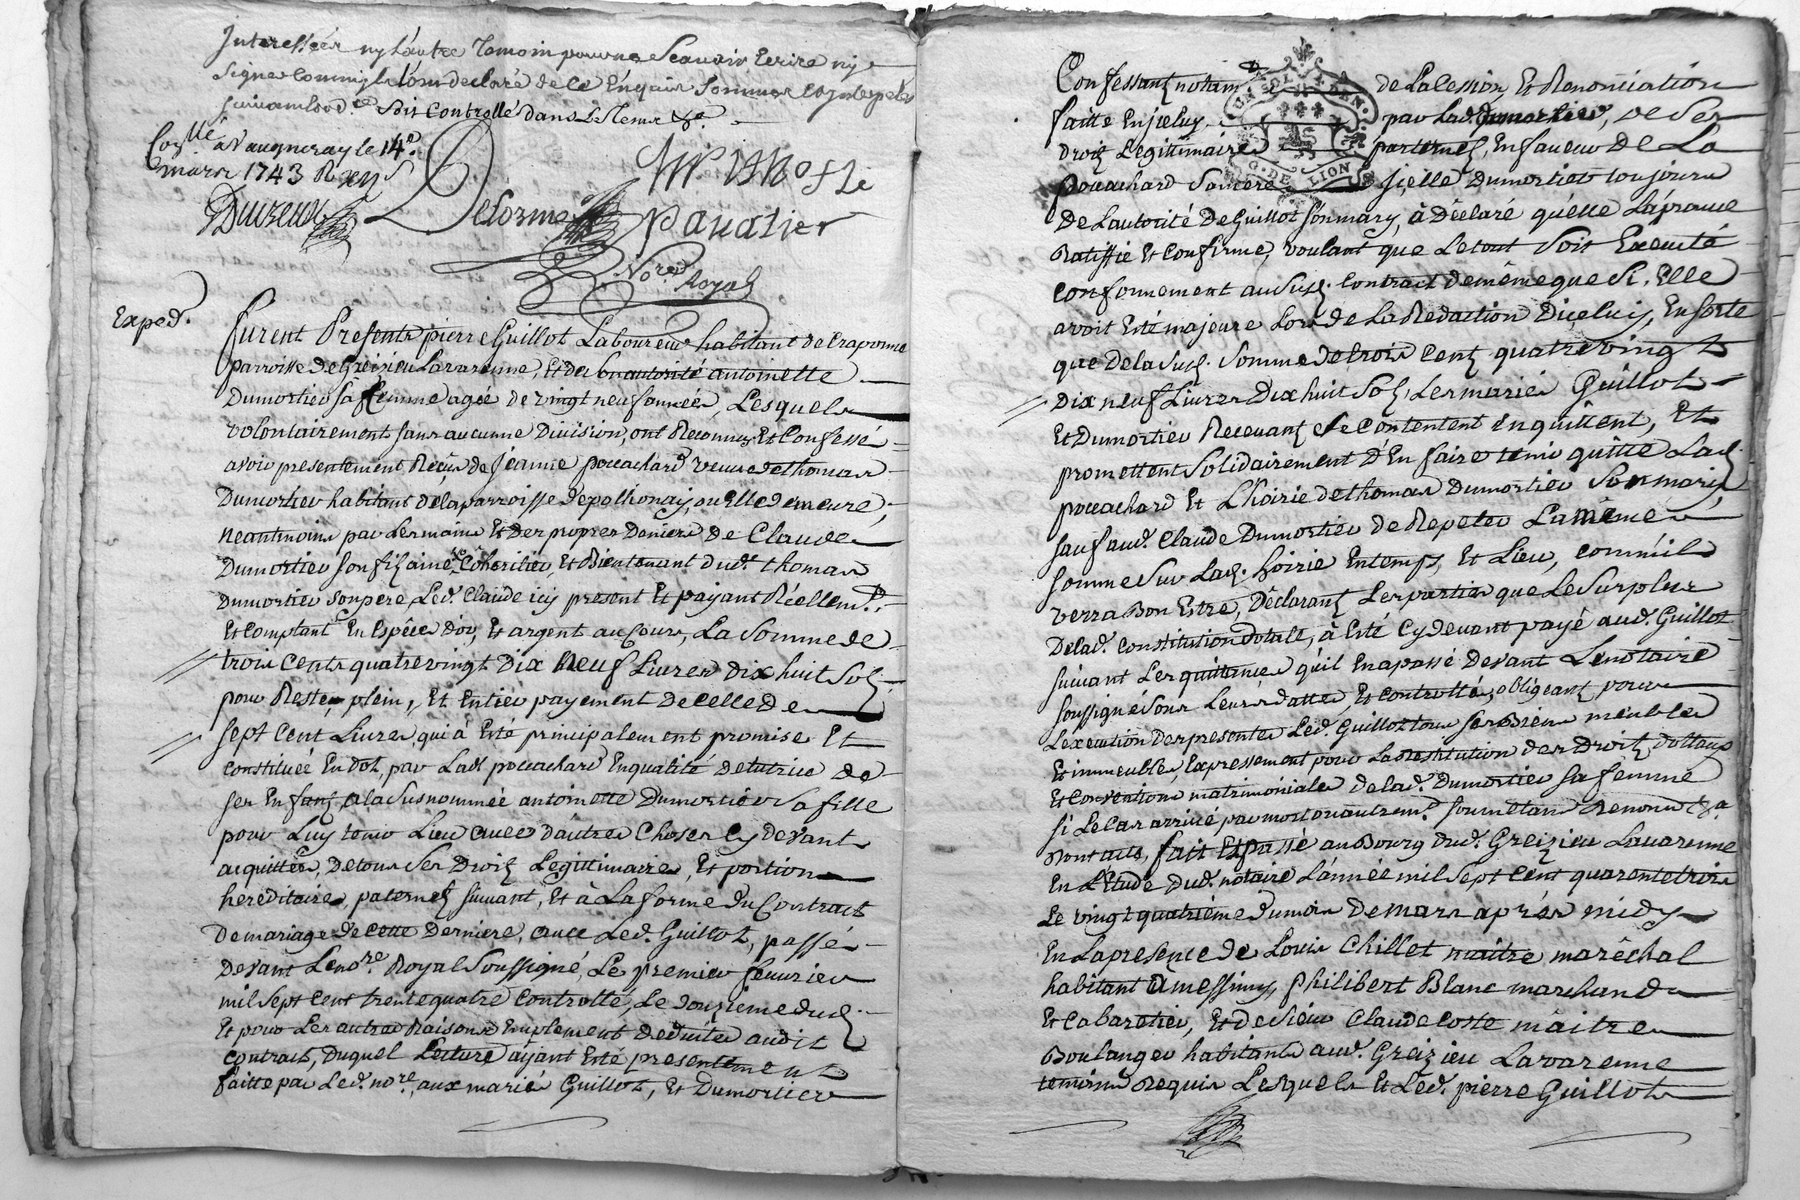 Interessées ny l'autre temoin pour ne scavoir Ecrire ny
signer comm'ils l'ont declaré de ce Enquis Sommés
suivant lord.ce Soit Controllé dans Le tems &.a
Con.llé à Vaugneray le 14e.
mars 1743 R
Delorme
Pavatier
No.re Royal
Exped.
furent Presents pierre Guillot Laboureur habitant de Craponne
parroisse de Greizieu Lavarenne, Et de son autorité antoinette
Dumortier sa ffemme agée de vingt neuf années, Lesquels
volontairement sans aucune Division, ont Reconnus Et Confessé
avoir presentement Reçus de Jeanne pouachard veuve de thomas
Dumortier habitant de la parroisse de pollionay, ou elle demeure,
neantmoins par Les mains Et Des propres Deniers de Claude
Dumortier son fils ainé, Coheritier, Et Bientenant dud. thomas
Dumortier son pere, Led. Claude icy present Et payant Réellem.t
Et Comptant En Espéce d'or, Et argent au Cours, La Somme de
trois Cents quatre vingt Dix Neuf Livres Dix huit Sols
pour Reste, plein, Et Entier payement De celle de
sept Cent Livres qui à Eté principalement promise Et
constituée En dot, par Lad. pouachard En qualité de tutrice de
ses Enfants à la susnommée antoinette Dumortier sa fille
pour Luy tenir Lieu avec d'autres Choses Cy devant
acquittées, De tous Ses Droits Legittimaires, Et portion
hereditaire, paternels suivant, Et à La forme du Contract
De mariage de cette Derniere, avec Led. Guillot, passé
Devant Le no.re Royal Soussigné, Le premier fevrier
mil Sept Cent trente quatre Controllé, Le Douzieme dud.
Et pour Les autres Raisons Emplement Deduites audit
Contract, Duquel Lecture aijant Eté presentement
faitte par Led. no.re, aux mariés Guillot, Et Dumortier
Confessants notam de La Cession Et Renonciation
faitte En jceluy par Lad. Dumortier, de Ses
Droits Legitimaires paternels, En faveur de La
pouachard Sa mere Jcelle Dumortier toujours
De L'autorité De Guillot son mary, à Déclaré qu'elle L'aprouve
Ratiffie Et Confirme, voulant que Le tout Soit Executé
conformement au Susd. Contract de même que Si, Elle
avoit Eté majeure Lors de La Redaction D'icelui, En sorte
que De la Susd. Somme de trois Cents quatre vingt
Dix neuf Livres Dix huit Sols, Les mariés Guillot
Et Dumortier Recevants Se Contentent En quittent, Et
promettent Solidairement d'En faire tenir quitte Lad.
pouachard Et L'hoirie de thomas Dumortier Son mary,
sauf aud. Claude Dumortier de Repeter La même
somme Sur Lad. hoirie En temps Et Lieu, comm'il
verra Bon Estre, Déclarants Les parties que Le Surplus
De lad. Constitution Dotale, à Eté Cy devant payé aud. Guillot
suivant Les quittances qu'il En a passé Devant Le notaire
soussigné Sous Leurs dattes Et Controllés, obligeant pour
L'execution Des presentes Led. Guillot tous Ses Biens meubles
Et immeubles Expressement pour La Restitution des Droits dottaux
Et Conventions matrimoniales de lad. Dumortier sa femme
si Le Cas arrive par mort ou autrem.t soumettant Renonçant &.a
Dont acte, fait Et passé au Bourg dud. Greizieu Lavarenne
En L'Etude dud. notaire L'année mil Sept Cent quarente trois
Le vingt quatriéme du mois de mars aprés midy
En La presence de Louis Chillet maitre maréchal
habitant à messimy, philibert Blanc marchand
Et Cabaretier, Et de Sieur Claude Coste maitre
Boulanger habitants aud. Greizieu Lavarenne
temoins Requis Lesquels Et Led. pierre Guillot